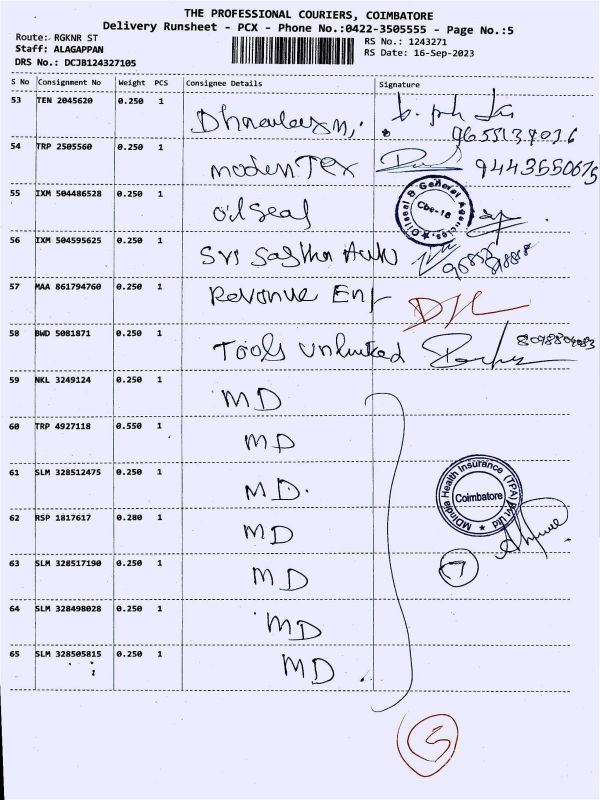 THE PROFESSIONAL COURIERS, COIMBATORE
Delivery Runsheet - PCX - Phone No.:0422-3505555 - Page No.:5
Route: RGKNR ST
RS No.: 1243271
Staff: ALAGAPPAN
RS Date: 16-Sep-2023
DRS No.: DCJB124327105
S No Consignment No Weight PCS Consignee Details Signature
53 TEN 2045620 0.250 1
9655137016
54 TRP 2505560 0.250 1 Moden Tex 9443550675
55 IXM 504486528 0.250 1 Oilseal
Oilseal & General Agencies, Cbe-18
56 IXM 504595625 0.250 1 Sri Sastha Auto
57 MAA 861794760 0.250 1 Revonue Ent
58 BWD 5081871 0.250 1 Tools Unlimited
59 NKL 3249124 0.250 1 MD
60 TRP 4927118 0.550 1 MD
61 SLM 328512475 0.250 1 MD.
MDIndia Health Insurance (TPA) Pvt Ltd Coimbatore
62 RSP 1817617 0.280 1 MD
63 SLM 328517190 0.250 1 MD 7
64 SLM 328498028 0.250 1 MD
65 SLM 328505815 0.250 1 MD
5